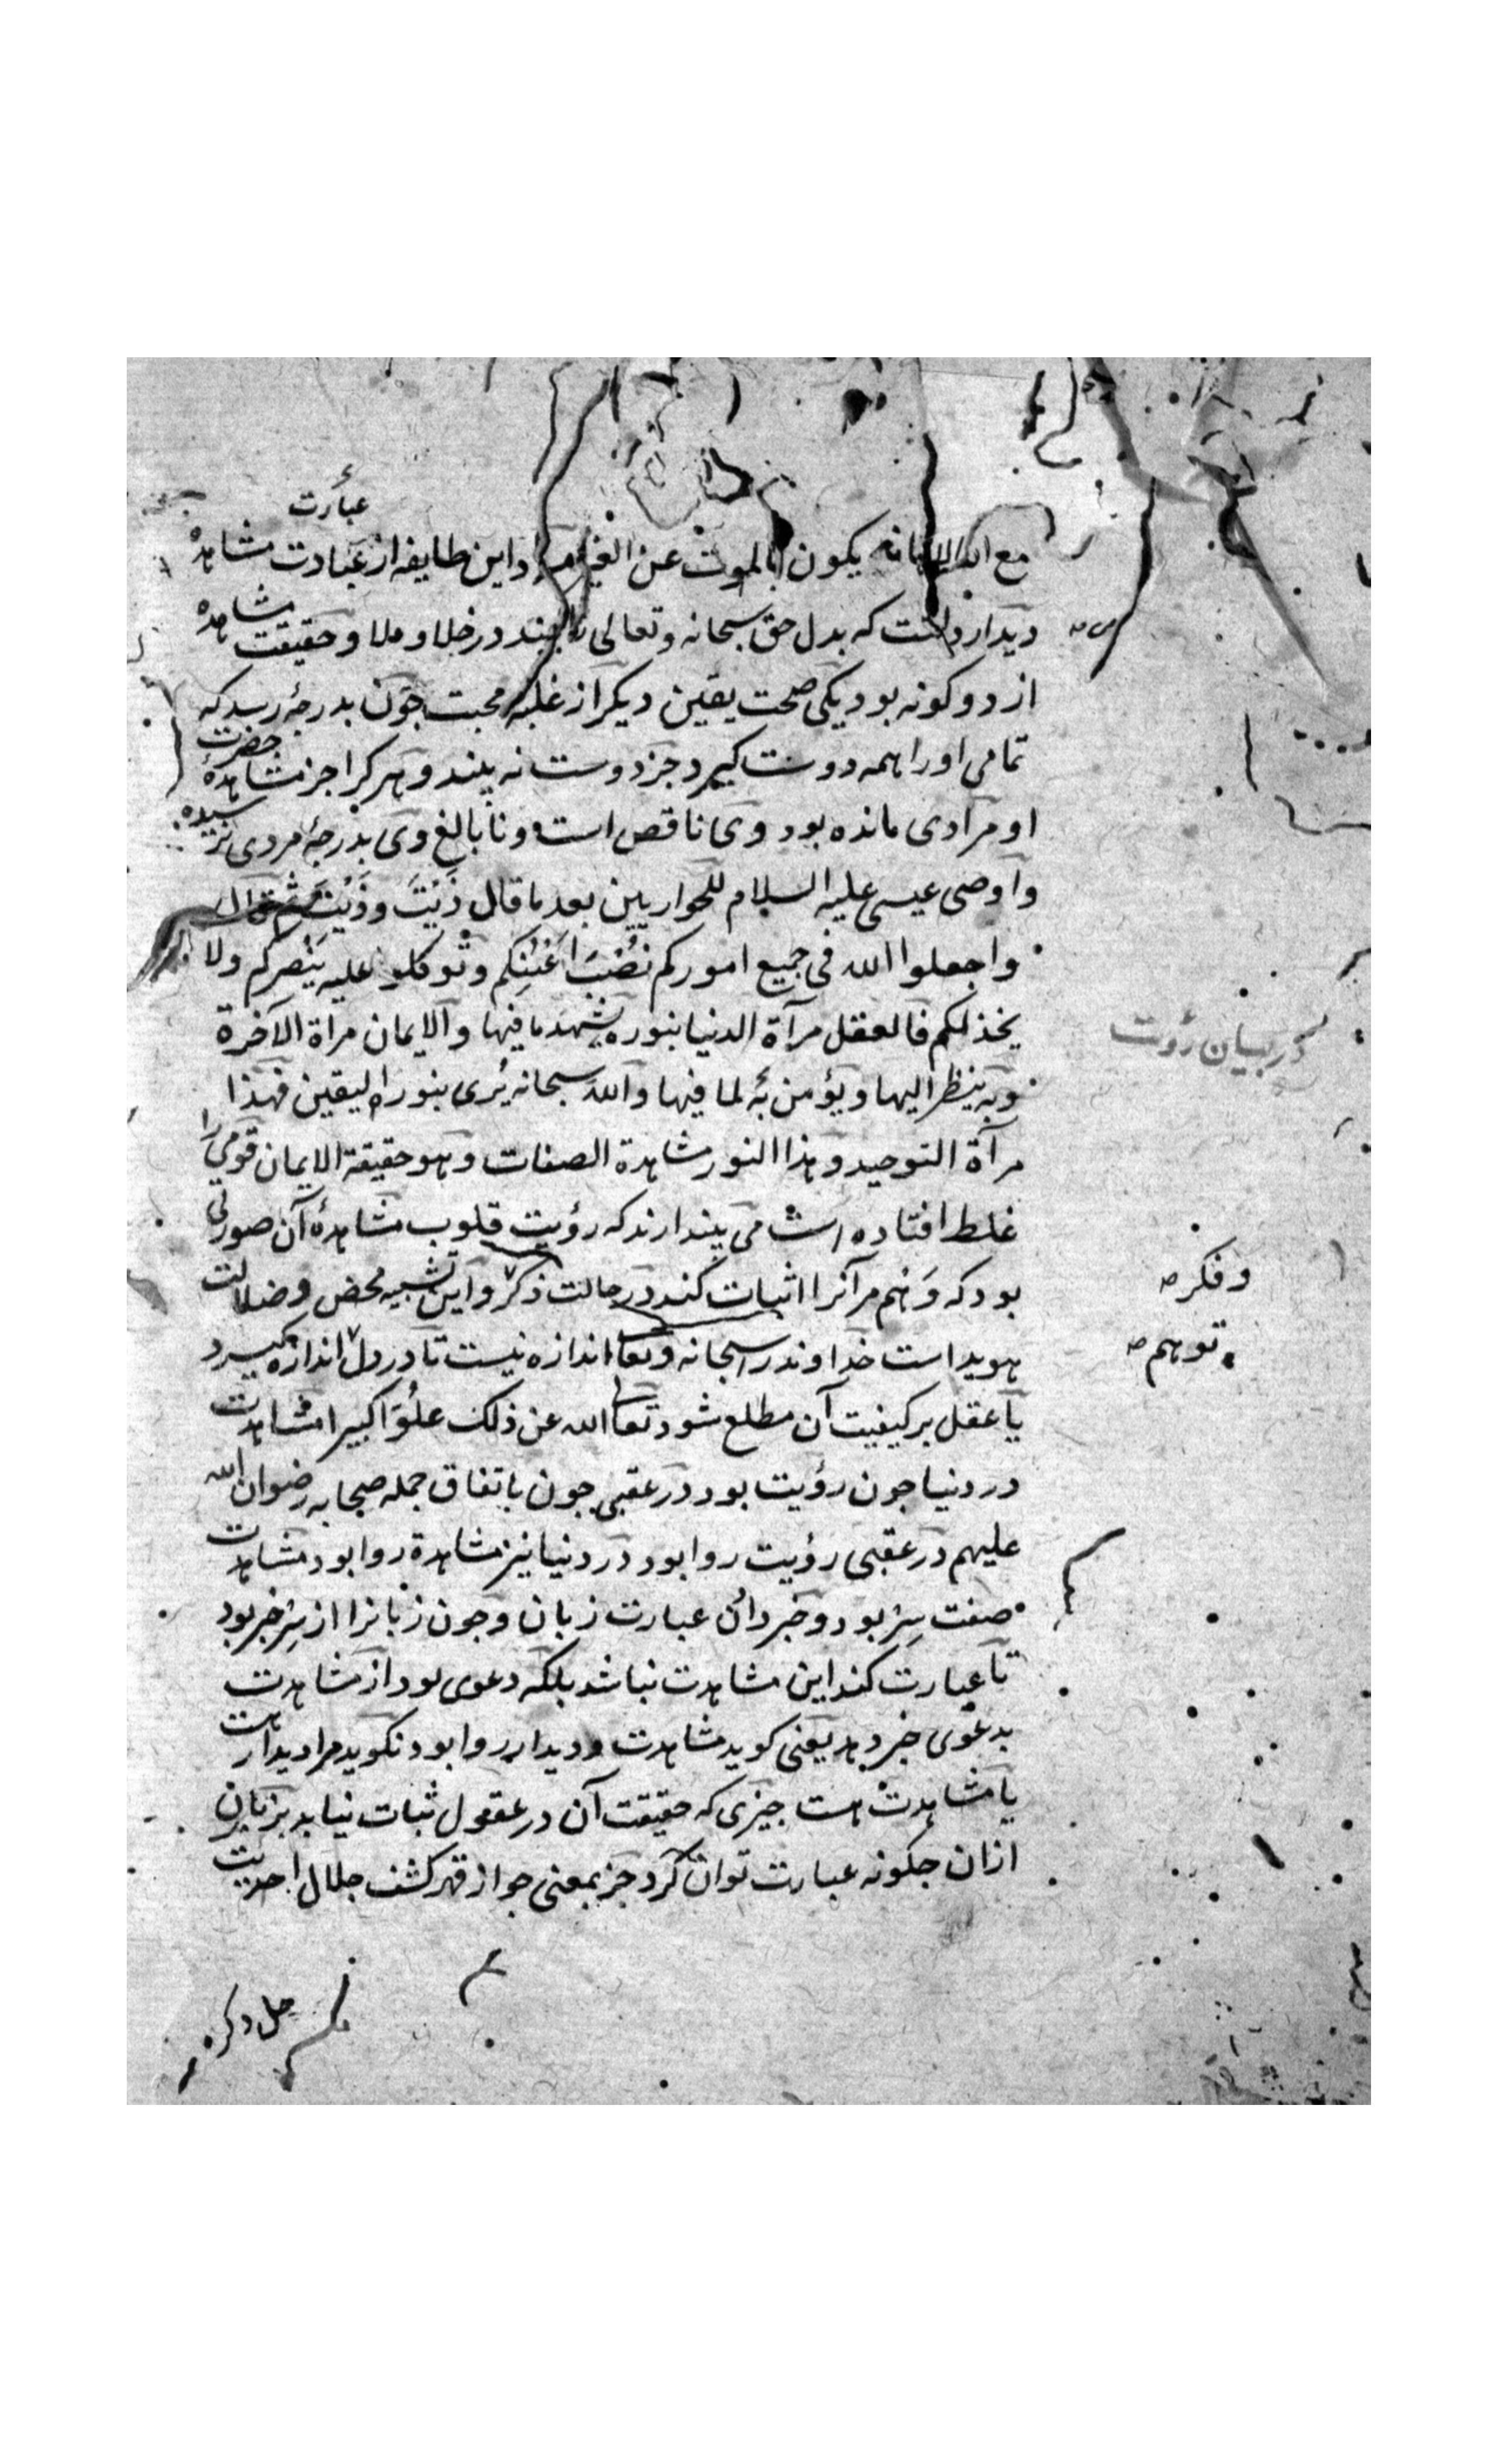 عبارت
مع الله يكون بالموت عن الغير مراد اين طايفه از عبادت مشاهده
ديدار دلست كه بدل حق سبحانه وتعالى را بيند در خلا و ملا و حقيقت مشاهده
از دو كونه بود يكى صحت يقين ديكر از غلبهٔ محبت چون بدرجهٔ رسد كه
تمامى او را همه دوست كيرد جز دوست نه بيند و هر كرا جز مشاهدهٔ حضرت
او مرادى مانده بود وى ناقص است و نابالغ وى بدرجهٔ مردى نرسيده
واوصى عيسى عليه السلام للحواريين بعد ما قال ذَيْتَ وذَيْتَ ثم قال
واجعلوا الله فى جميع اموركم نُصْبَ اَعْيُنِكم وتوكلو عليه يَنْصركم ولا
يخذلكم فالعقل مرآة الدنيا بنوره يشهد ما فيها والايمان مراة الآخرة
وبه ينظر اليها ويؤمن به لما فيها والله سبحانه يُرى بنور اليقين فهذا
مرآة التوحيد وهذا النور مشاهدة الصفات وهو حقيقة الايمان قومى را
غلط افتاده است مى پندارند كه رؤيت قلوب مشاهدهٔ آن صورتى
بود كه وَهْم مر آنرا اثبات كند در حالت ذكر و اين تشبيه محض و ضلالت
هويداست خداوند را سبحانه وتعا اندازه نيست تا در دل اندازه كيرد
يا عقل بر كيفيت آن مطلع شود تعا الله عن ذلك علُوّا كبيرا مشاهدت
در دنيا چون رؤيت بود در عقبى چون باتفاق جمله صحابه رضوان الله
عليهم در عقبى رؤيت روا بود در دنيا نيز مشاهدة روا بود مشاهدت
صفت سِرّ بود و خبر دادن عبارت زبان و چون زبانرا از سِرّ خبر بود
تا عبارت كند اين مشاهدت نباشد بلكه دعوى بود از مشاهدت
بدعوى خبر دهد يعنى كويد مشاهدت و ديدار روا بود نكويد مرا ديدار هست
يا مشاهدت هست چيزى كه حقيقت آن در عقول ثبات نيابد بر زبان
ازان چكونه عبارت توان كرد جز بمعنى جواز قهر كشف جلال احديت
در بيان رؤت
وفكر صـ
توهم صـ